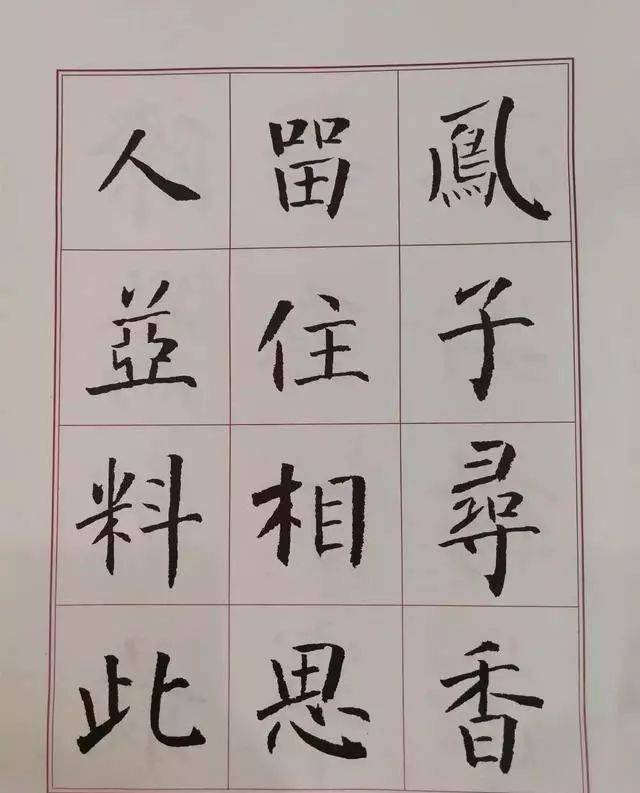 鳳子尋香
㽞住相思
人並料此